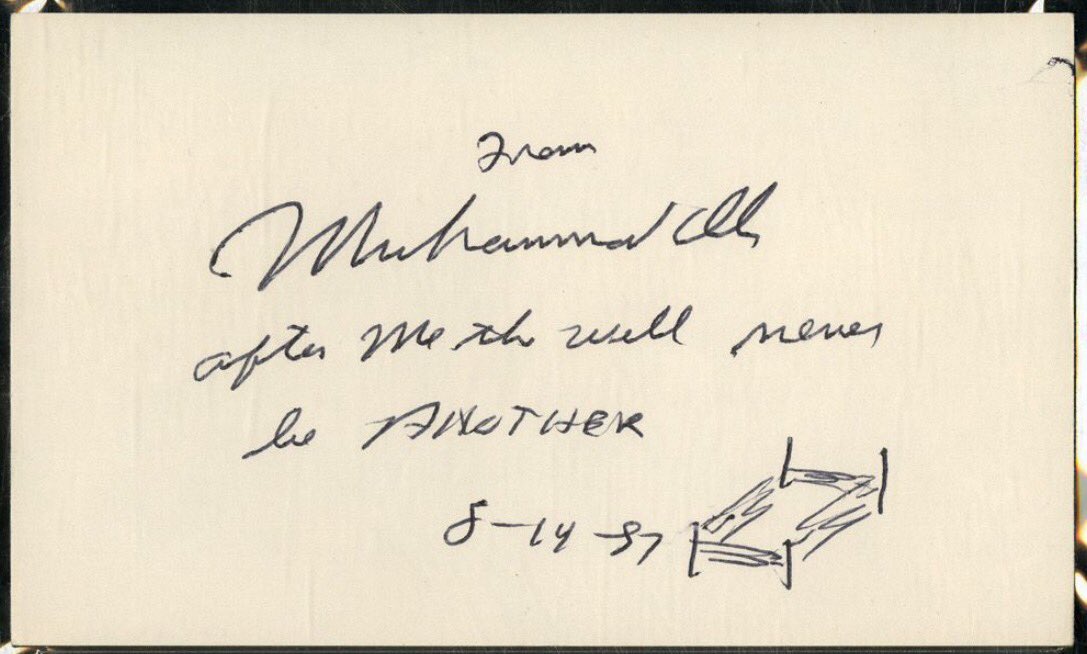 From
Muhammad Ali
after Me the will never
be ANOTHER
8-14-87